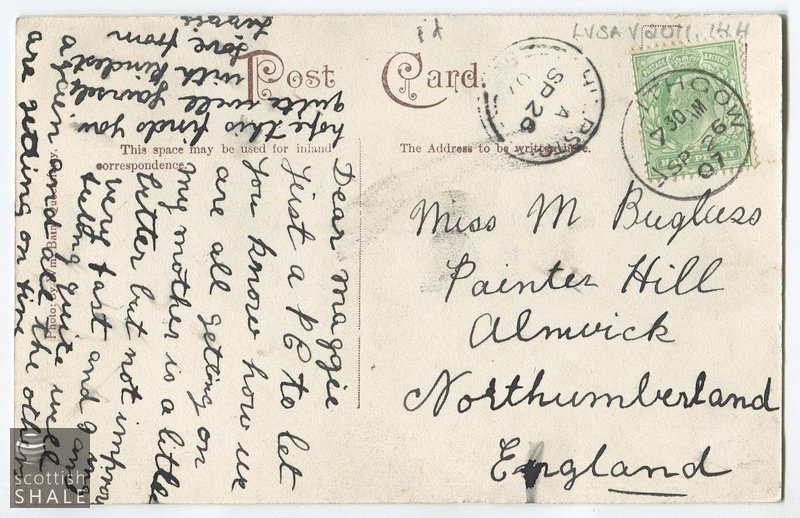 LVSAV2011.144
Post Card.
This space may be used for inland correspondence.
The Address to be written here.
POSTAGE REVENUE
HALF PENNY
7 30 AM
SP 26
07
A
SP 26
07
Dear Maggie
Just a PC to let
you know how we
are all getting on
My mother is a little
better but not improv
very fast and I am
feeling quite well
again and all the others
are getting on fine
hope this finds you
quite well yourself
with kindest
love from
Miss M Buglass
Painter Hill
Alnwick
Northumberland
England
scottish
SHALE